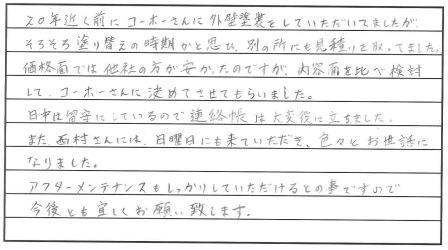 20年近く前にコーホーさんに外壁塗装をしていただいてましたが、
そろそろ塗り替えの時期かと思い、別の所にも見積りを取ってました。
価格面では他社の方が安かったのですが、内容面を比べ検討
して、コーホーさんに決めてさせてもらいました。
日中は留守にしているので連絡帳は大変役に立ちました。
また、西村さんには、日曜日にも来ていただき、色々とお世話に
なりました。
アフターメンテナンスもしっかりしていただけるとの事ですので
今後とも宜しくお願い致します。